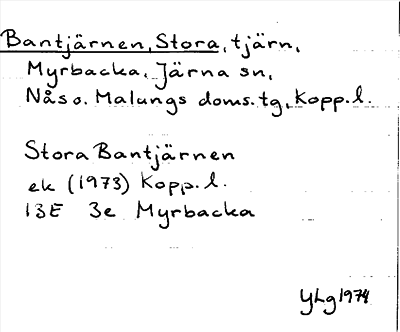 Bantjärnen, Stora, tjärn,
Myrbacka, Järna sn,
Nås o. Malungs doms. tg, Kopp. l.
Stora Bantjärnen
ek (1973) Kopp. l.
13E 3e Myrbacka
YLg 1974